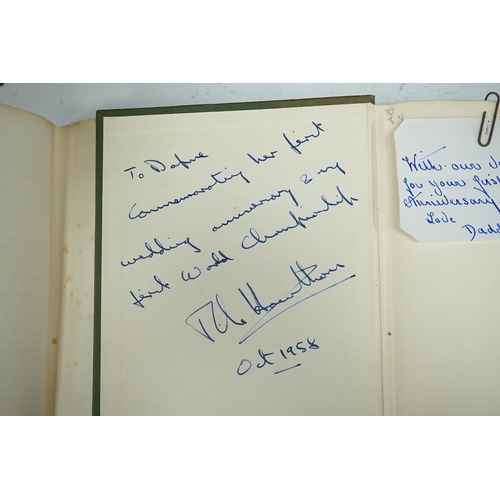 To Dafne
Commemorating her first
wedding anniversary & my
first World Championship
Mike Hawthorn
Oct 1958
With our
for your first
Anniversary
Love
Dadd